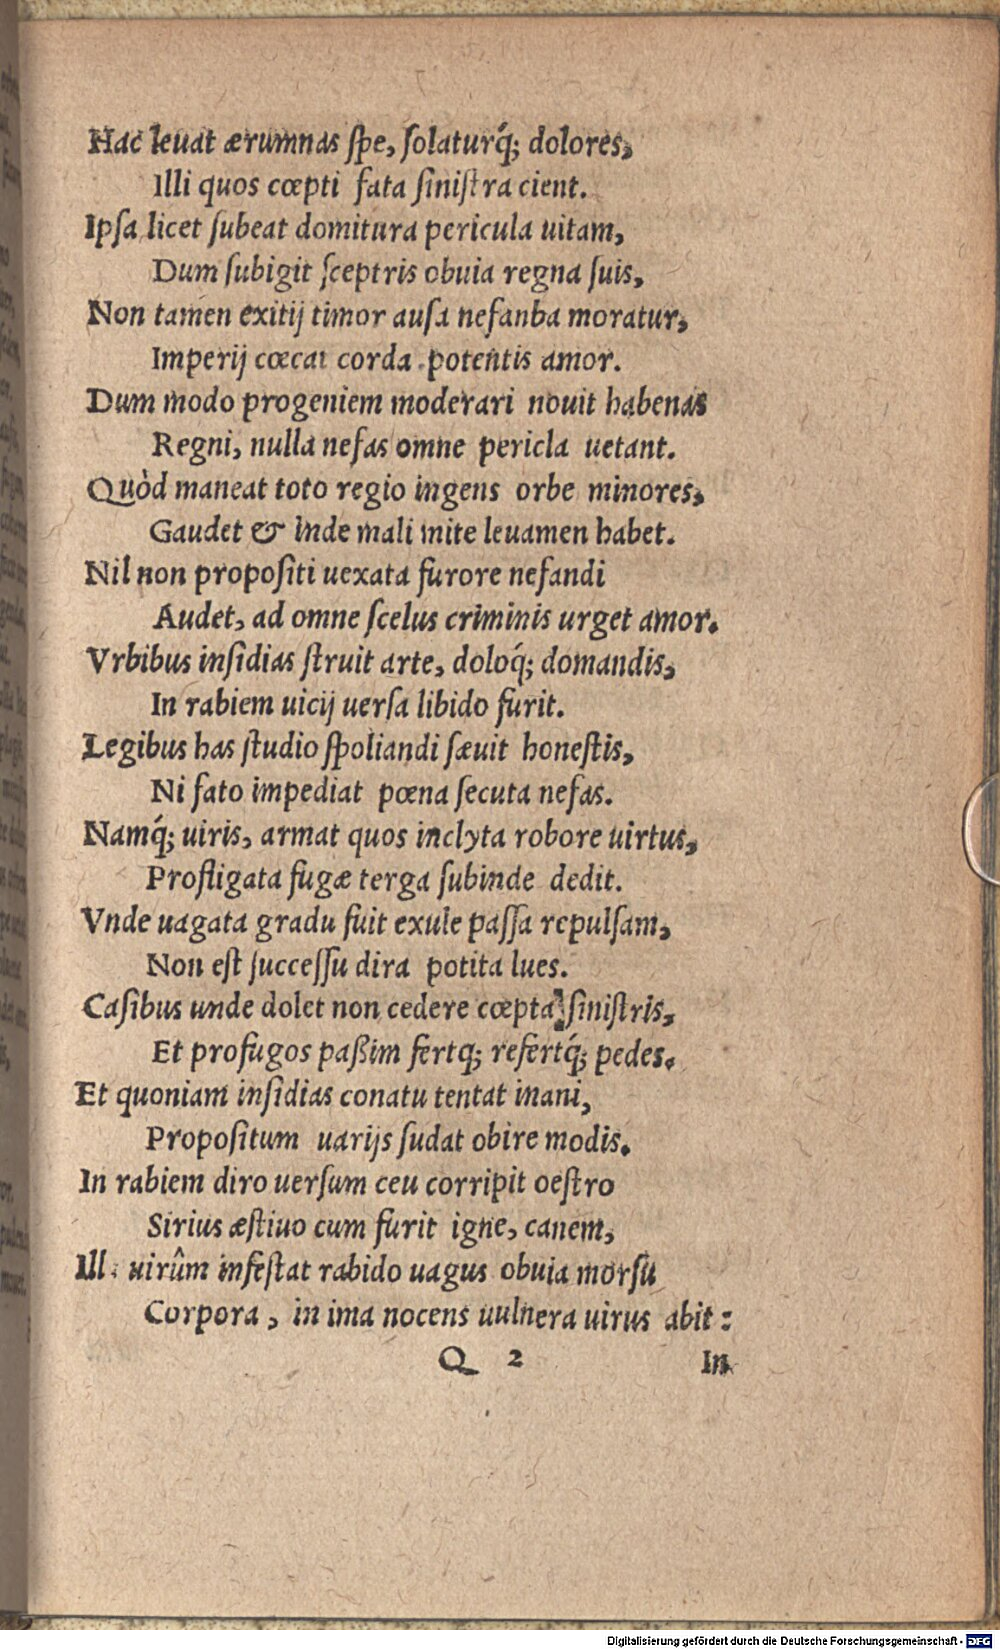 Hac leuat ærumnas ſpe, ſolaturq́; dolores,
Illi quos cœpti fata ſiniſtra cient.
Ipſa licet ſubeat domitura pericula uitam,
Dum ſubigit ſceptris obuia regna ſuis,
Non tamen exitij timor auſa nefanba moratur,
Imperij cœcat corda potentis amor.
Dum modo progeniem moderari nouit habenas
Regni, nulla nefas omne pericla uetant.
Quòd maneat toto regio ingens orbe minores,
Gaudet & inde mali mite leuamen habet.
Nil non propoſiti uexata furore nefandi
Audet, ad omne ſcelus criminis urget amor.
Vrbibus inſidias ſtruit arte, doloq́; domandis,
In rabiem uicij uerſa libido furit.
Legibus has ſtudio ſpoliandi ſæuit honeſtis,
Ni fato impediat pœna ſecuta nefas.
Namq́; uiris, armat quos inclyta robore uirtus,
Profligata fugæ terga ſubinde dedit.
Vnde uagata gradu fuit exule paſſa repulſam,
Non eſt ſucceſſu dira potita lues.
Caſibus unde dolet non cedere cœpta ſiniſtris,
Et profugos paßim fertq; refertq́; pedes.
Et quoniam inſidias conatu tentat inani,
Propoſitum uarijs ſudat obire modis.
In rabiem diro uerſum ceu corripit oeſtro
Sirius æſtiuo cum furit igne, canem,
Ill. uirûm infeſtat rabido uagus obuia morſu
Corpora, in ima nocens uulnera uirus abit:
Q 2
In
Digitalisierung gefördert durch die Deutsche Forschungsgemeinschaft - DFG